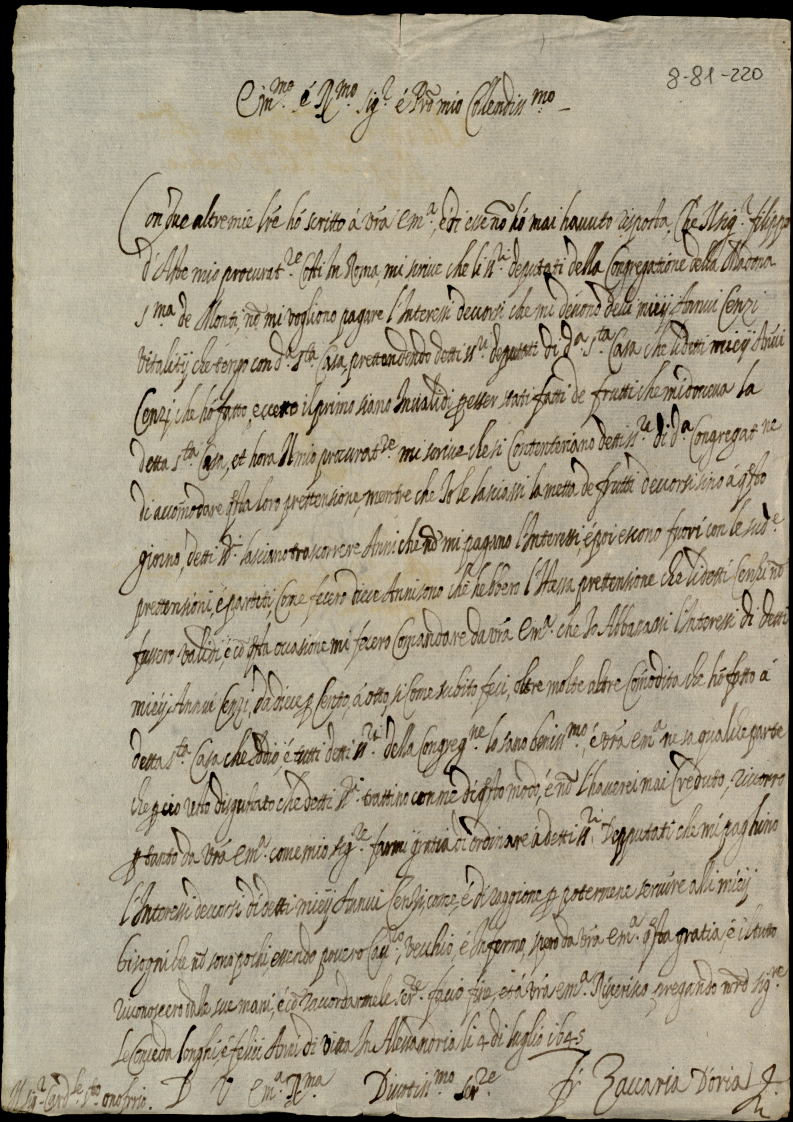 8-81-220
Em.mo é R.mo Sig.r é Prõn mio Collendiss.mo
Con due altre mie lre hó scritto á Vrã Em.a, é di esse nõ hó mai havuto risposta, Che Il Sig.r filippo
d'Abbe mio procurat.re Costi In Roma, mi scrive che li SS.ri deputati della Congregatione della Madona
S.ma de Monti, nõ mi vogliono pagare l'Interessi decorsi che mi devono delli mieij Annui Cenzi
Vitalitij che tengo con d.a S.ta Casa, prettendendo detti SS.ri deputati di d.a S.ta Casa che li detti mieij Añui
Cenzi, che hó fatto, eccetto il primo siano Invalidi p esser stati fatti de frutti che mi doveva la
detta S.ta Casa, et hora Il mio procurat.re mi scrive che si Contenteriano detti SS.ri di d.a Congregat.ne
di accomodare q̃sta loro prettensione, mentre che Io le lasciassi la metta de frutti decorsi sino á q̃sto
giorno, detti SS.ri lasciano trascorrere Anni che nõ mi pagano l'Interessi é poi escono fuori con le sud.e
prettensioni, é partiti, Come fecero diece Anni sono che hebbero l'Istessa prettensione che li detti Cenzi nõ
fussero validi, é cõ q̃sta occasione mi fecero Comandare da Vrã Em.a che Io Abbassassi l'Interessi di detti
mieij Annui Cenzi, da diece p Cento, á otto, si Come subito feci, oltre molte altre Comodita che hó fatto á
detta S.ta Casa che Iddio, é tutti detti SS.ri della Congreg.ne lo sano beniss.mo, é Vrã Em.a ne sa qualche parte
che p cio resto disgustato che detti SS.ri trattino con me di q̃sto modo, é nõ l'haverei mai Creduto, ricorro
p tanto da Vrã Em.a come mio Sig.re farmi gratia di ordinare á detti SS.ri Depputati che mi paghino
l'Interessi decorsi di detti mieij Annui Cenzi, come, é di raggione p potermene servire alli mieij
bisogni che nõ sono pochi essendo povero Cav.ro, Vecchio, é Infermo, spero da Vrã Em.a q̃sta gratia, é il tutto
riconoscero dalle sue mani, é cõ raccordarmele Ser.re facio fine, et á Vrã Em.a Riverisco, pregando nrõ Sig.re
Le Conceda longhi, é felici Anni di Vita In Alessandria li 4 di luglio 1645
D V Em.a R.ma Divotiss.mo Ser.re
fr Zaccaria D'oria
Il Sig.r Card.le S.to onofrio.